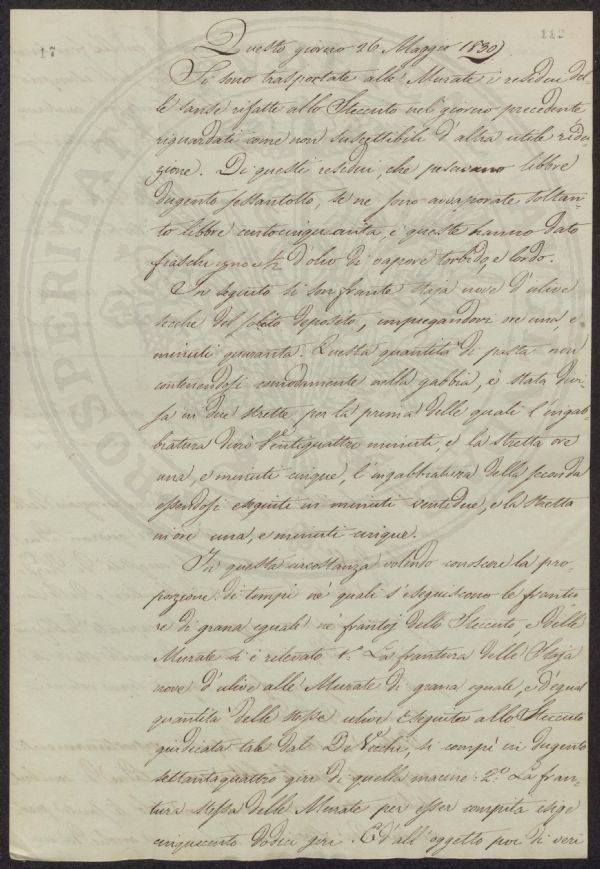 17
113
Questo giorno 26 Maggio 1830
Si sono trasportate alle Murate i residui del
le sanse rifatte allo Steccuto nel giorno precedente
riguardati come non suscettibili d'altra utile ridu-
zione. Di questi residui, che pesavano libbre
dugento sessantotto, se ne sono avvaporate soltan-
to libbre centocinquanta, e queste hanno dato
fiaschi uno e 1/2 d'olio di vapore torbido, e lordo.
In seguito si son frante staja nove d'ulive
secche del solito deposito, impiegandovi ore una, e
minuti quaranta. Questa quantità di pasta non
contenendosi comodamente nella gabbia, è stata divi-
sa in due strette, per la prima delle quali l'ingab-
briatura durò ventiquattro minuti, e la stretta ore
una, e minuti cinque, l'ingabbriatura della seconda
essendosi eseguita in minuti ventidue, e la stretta
in ore una, e minuti cinque.
In questa circostanza volendo conoscere la pro-
porzione di tempi ne' quali s'eseguiscono le frantu
re di grana eguale ne' frantoj dello Steccuto, e delle
Murate si è rilevato 1.º La frantura delle Staja
nove d'ulive alle Murate di grana eguale, e d'egual
quantità delle stesse ulive eseguita allo Steccuto
giudicata tale dal De Vecchi, si compì in dugento
settantaquattro giri di quella macine: 2.º La fran-
tura stessa delle Murate per esser compita esige
cinquecento dodici giri. E d'all'oggetto poi di veri